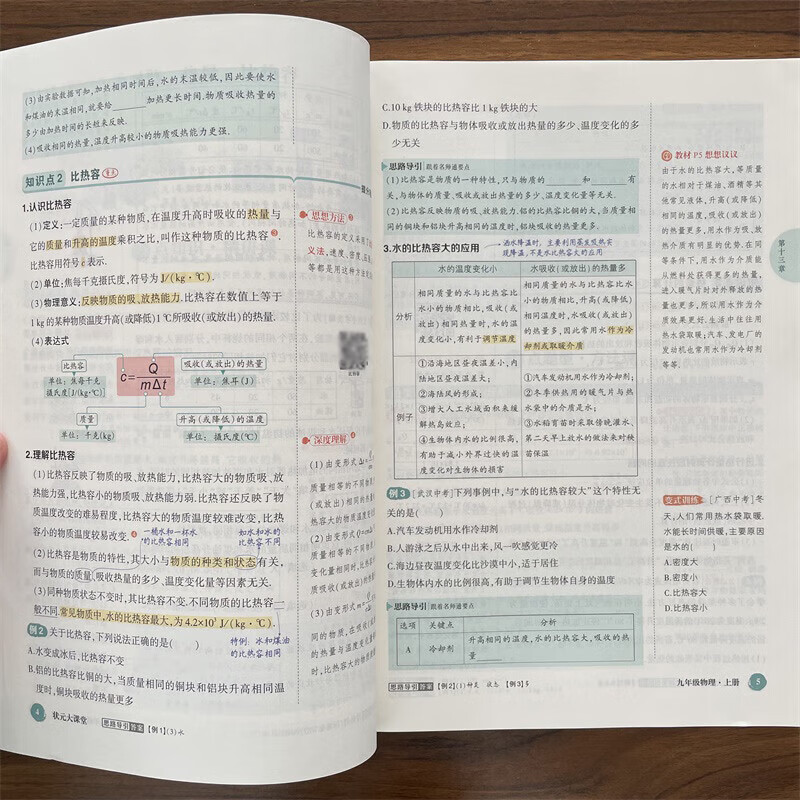 (3)由实验数据可知,加热相同时间后,水的末温较低,因此要使水
和煤油的末温相同,就要给______加热更长时间.物质吸收热量的
多少由加热时间的长短来反映.
(4)吸收相同的热量,温度升高较小的物质吸热能力更强.
知识点2 比热容 重点
1.认识比热容
(1)定义:一定质量的某种物质,在温度升高时吸收的热量与
它的质量和升高的温度乘积之比,叫作这种物质的比热容
比热容用符号c表示.
(2)单位:焦每千克摄氏度,符号为J/(kg·℃).
(3)物理意义:反映物质的吸、放热能力.比热容在数值上等于
1kg的某种物质温度升高(或降低)1℃所吸收(或放出)的热量.
(4)表达式
比热容
单位:焦每千克
摄氏度[J/(kg·℃)]
c=Q/mΔt
吸收(或放出)的热量
单位:焦耳(J)
质量
单位:千克(kg)
升高(或降低)的温度
单位:摄氏度(℃)
2.理解比热容
(1)比热容反映了物质的吸、放热能力,比热容大的物质吸、放
热能力强,比热容小的物质吸、放热能力弱.比热容还反映了物
质温度改变的难易程度,比热容大的物质温度较难改变,比热
容小的物质温度较易改变. 4
一桶水和一杯水
的比热容相同
如水和冰的
比热容不同
(2)比热容是物质的特性,其大小与物质的种类和状态有关,
而与物质的质量,吸收热量的多少、温度变化量等因素无关.
(3)同种物质状态不变时,其比热容不变.不同物质的比热容一
般不同.常见物质中,水的比热容最大,为4.2×10³J/(kg·℃).
例2 关于比热容,下列说法正确的是( )
特例:冰和煤油
的比热容相同
A.水变成冰后,比热容不变
B.铝的比热容比铜的大,当质量相同的铜块和铝块升高相同温
度时,铜块吸收的热量更多
4 状元大课堂 思路导引答案【例1】(3)水
思想方法
比热容的定义采用了
义法,速度、密度、压
等都是用这种方法
深度理解 4
(1)由变形式Δt=
质量相等的不同物质
(或放出)相同的热量
热容大的物质温度变
(2)由变形式Q=cmΔt
质量相等的不同物质
变化量相同时,比热
质吸收(或放出)的热量
(3)由变形式m=
同的物质,在吸收(或
的热量与温度变化量
时,比热容大的物质
C.10 kg铁块的比热容比1 kg铁块的大
D.物质的比热容与物体吸收或放出热量的多少、温度变化的多
少无关
思路导引 跟着名师通要点
(1)比热容是物质的一种特性,只与物质的______和______有
关,与物体的质量、吸收或放出热量的多少、温度变化量等无关.
(2)比热容反映物质的吸、放热能力.铝的比热容比铜的大,当质量相
同的铜块和铝块升高相同的温度时,铝块吸收的热量更多.
3.水的比热容大的应用
洒水降温时,主要利用蒸发吸热实
现降温,不是水比热容大的应用
水的温度变化小
水吸收(或放出)的热量多
分析
相同质量的水与比热容比
水小的物质相比,吸收(或放
出)相同热量时,水的温
度变化小,有利于调节温度
相同质量的水与比热容比水
小的物质相比,升高(或降低)
相同温度时,水吸收(或放出)
的热量多,因此常用水作为冷
却剂或取暖介质
例子
①沿海地区昼夜温差小,内
陆地区昼夜温差大;
②海陆风的形成;
③增大人工水域面积来缓
解热岛效应;
④生物体内水的比例很高,
有助于减小外界过快的温
度变化对生物体的损害
①汽车发动机用水作为冷却剂;
②冬季供热用的暖气片与热
水袋中的介质是水;
③水稻育苗时采取傍晚灌水、
第二天早上放水的做法来对秧
苗保温
例3 [武汉中考]下列事例中,与“水的比热容较大”这个特性无
关的是( )
A.汽车发动机用水作冷却剂
B.人游泳之后从水中出来,风一吹感觉更冷
C.海边昼夜温度变化比沙漠中小,适于居住
D.生物体内水的比例很高,有助于调节生物体自身的温度
思路导引 跟着名师通要点
选项 关键点 分析
A 冷却剂
升高相同的温度,水的比热容大,吸收的热
量______
思路导引答案【例2】(1)种类 状态 【例3】多
教材P5想想议议
由于水的比热容大,等质量
的水相对于煤油、酒精等其
他常见液体,升高(或降低)
相同的温度,吸收(或放出)
的热量更多,用水作为吸、放
热介质有明显的优势.在同
等条件下,用水作为介质能
从燃料处获得更多的热量,
进入暖气片时对外释放的热
量也更多,所以用水作为介
质效果更好.生活中往往用
热水袋取暖;汽车、发电厂的
发动机也常用水作为冷却剂
等等.
第十三章
变式训练 [广西中考]冬
天,人们常用热水袋取暖,
水能长时间供暖,主要原因
是水的( )
A.密度大
B.密度小
C.比热容大
D.比热容小
九年级物理·上册 5